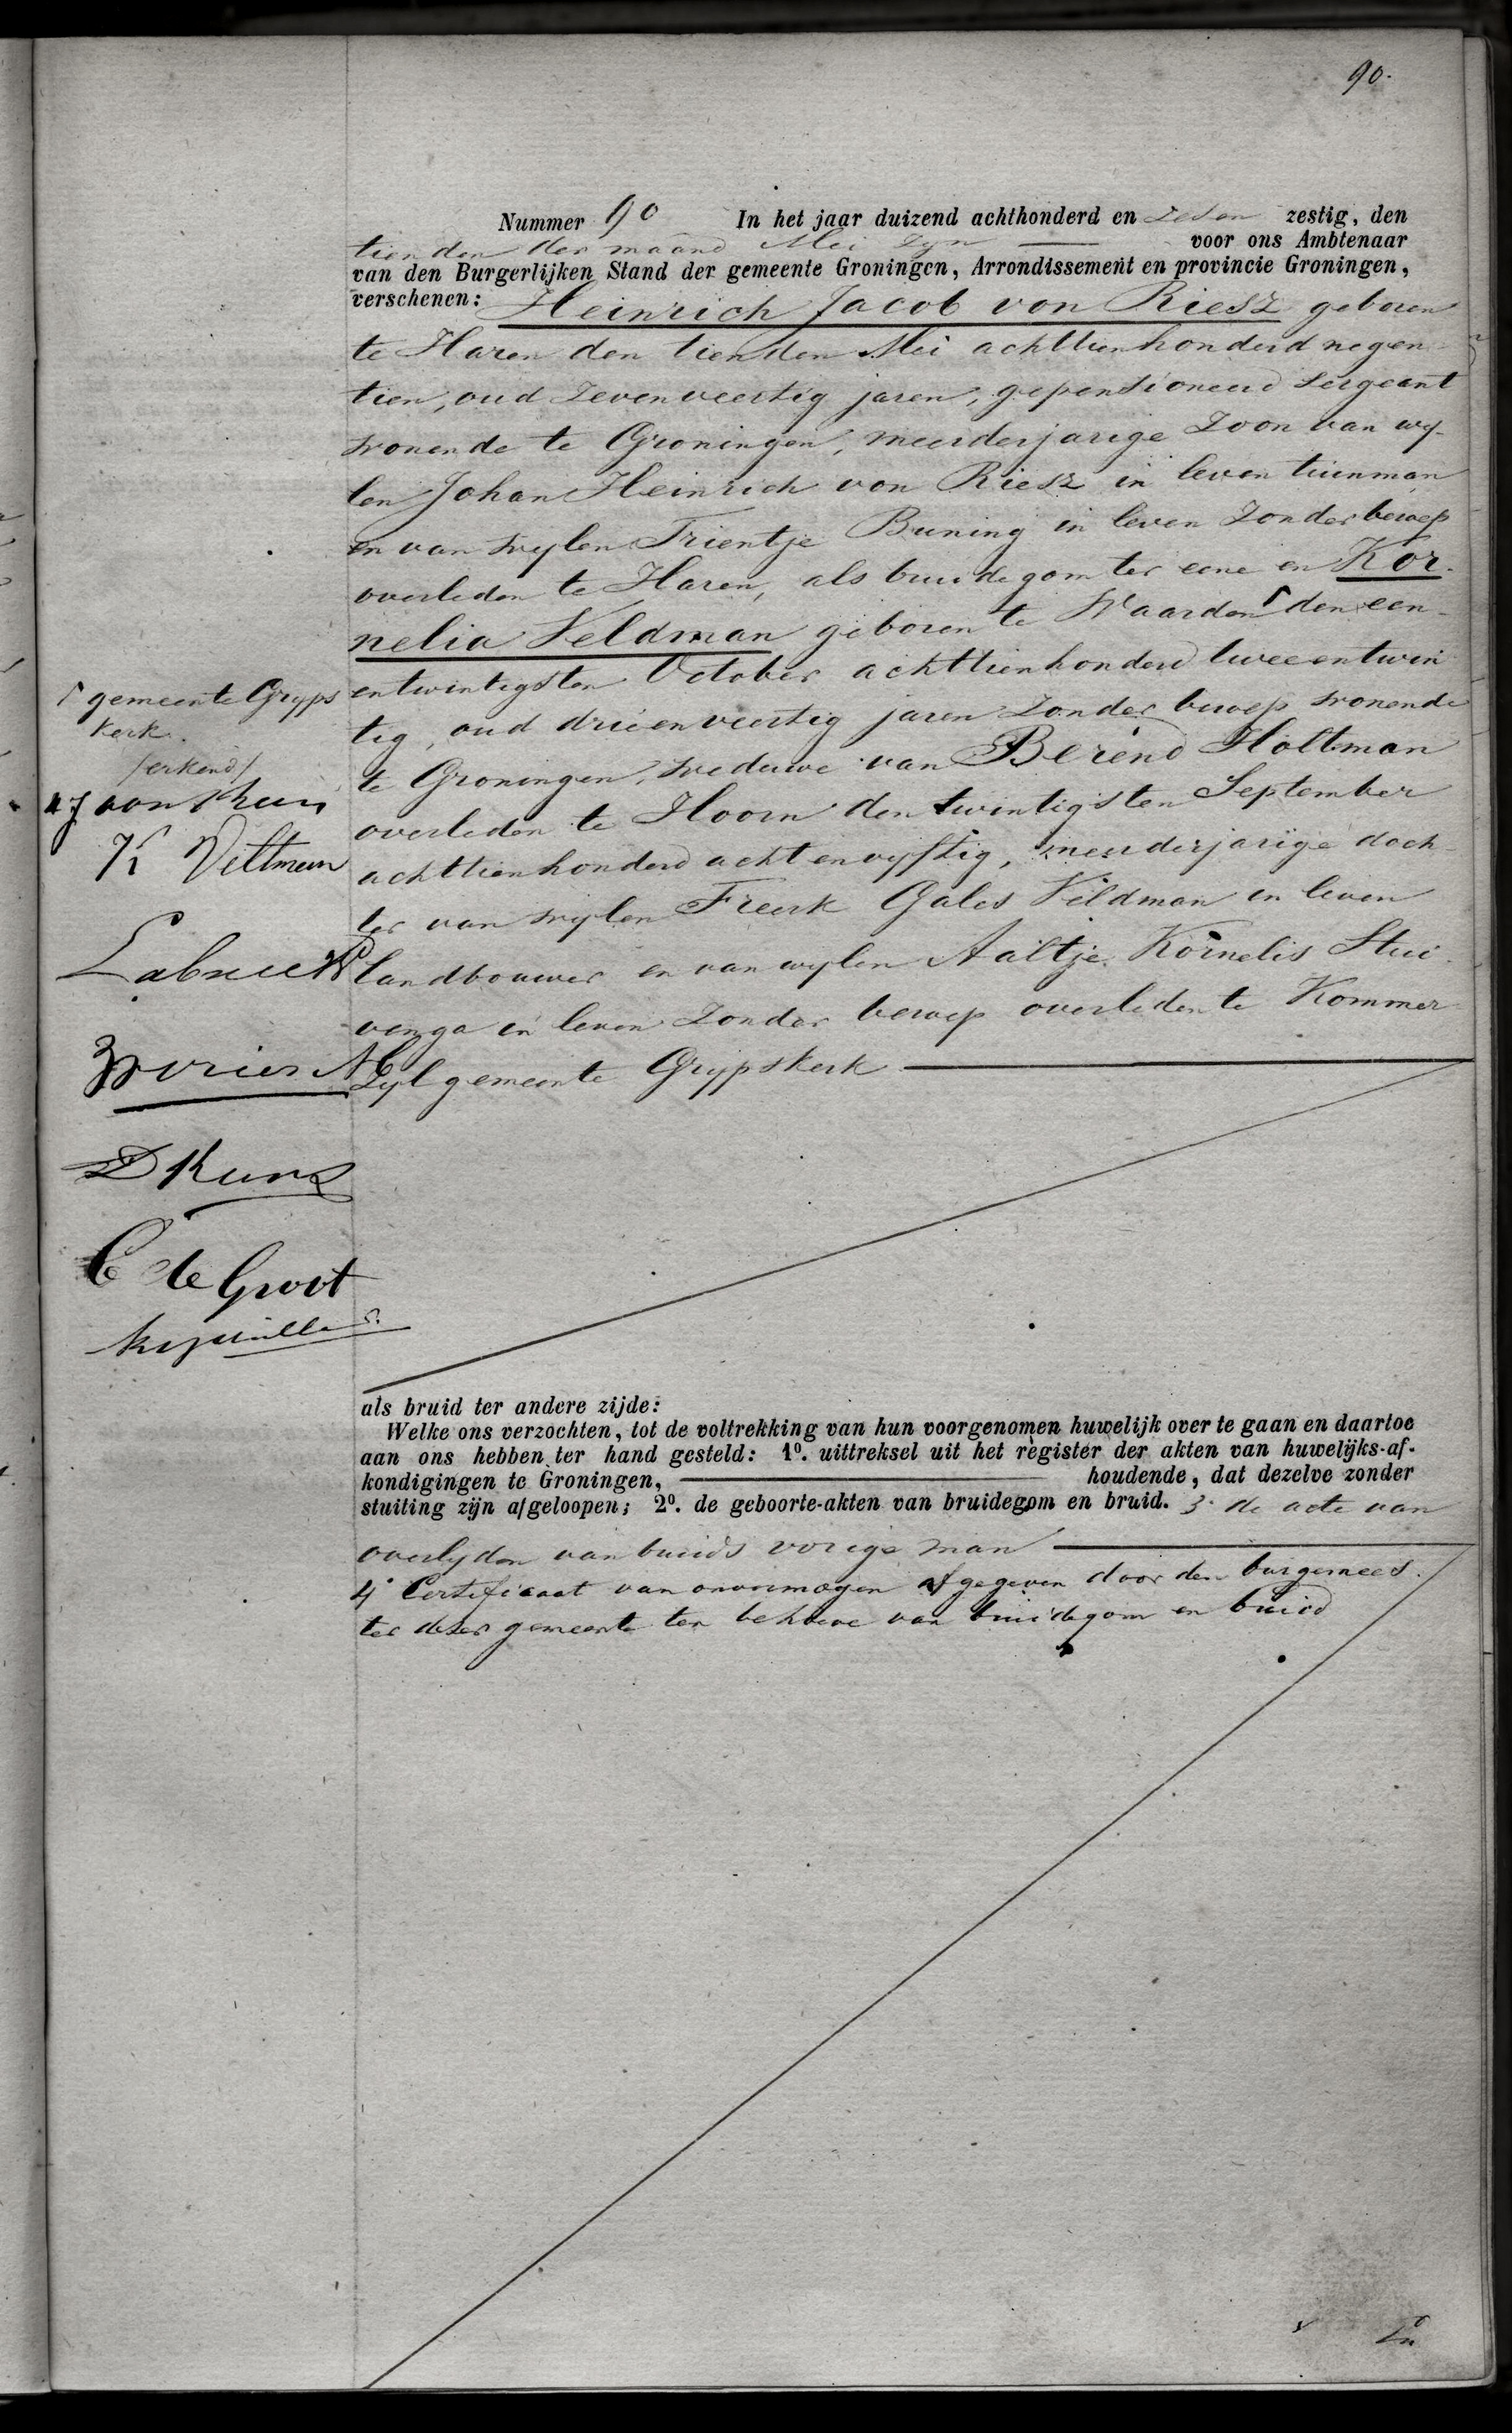 90.
Nummer 90 In het jaar duizend achthonderd en zes en zestig, den
tienden der maand Mei zyn voor ons Ambtenaar
van den Burgerlijken Stand der gemeente Groningen, Arrondissement en provincie Groningen,
verschenen: Heinrich Jacob von Riesz geboren
te Haren den tienden Mei achttienhonderd negen-
tien, oud Zevenveertig jaren, gepensioneerd Sergeant
wonende te Groningen, meerderjarige Zoon van wy-
len Johan Heinrich von Riesz in leven tuinman
en van wylen Trientje Buning in leven Zonder beroep
overleden te Haren, als bruidegom ter eene en Kor-
nelia Veldman geboren te Waarden den een-
entwintigsten October achttienhonderd tweeentwin
tig, oud drieenveertig jaren Zonder beroep wonende
te Groningen, weduwe van Berend Holtman
overleden te Hoorn den twintigsten September
achttienhonderd acht envyftig, meerderjarige doch-
ter van wylen Freerk Gales Veldman in leven
landbouwer en van wylen Aaltje Kornelis Stui-
venga in leven Zonder beroep overleden te Kommer
Zyl gemeente Grypskerk
gemeente Gryps
kerk.
/erkend/
K Veltman
D Kuns
C de Groot
als bruid ter andere zijde:
Welke ons verzochten, tot de voltrekking van hun voorgenomen huwelijk over te gaan en daartoe
aan ons hebben ter hand gesteld: 1º. uittreksel uit het register der akten van huwelijks-af-
kondigingen te Groningen, houdende, dat dezelve zonder
stuiting zijn afgeloopen; 2º. de geboorte-akten van bruidegom en bruid. 3º de acte van
overlyden van bruids vorige man
4º Certificaat van onvermogen afgegeven door den burgemees-
ter dezer gemeente ten behoeve van bruidegom en bruid